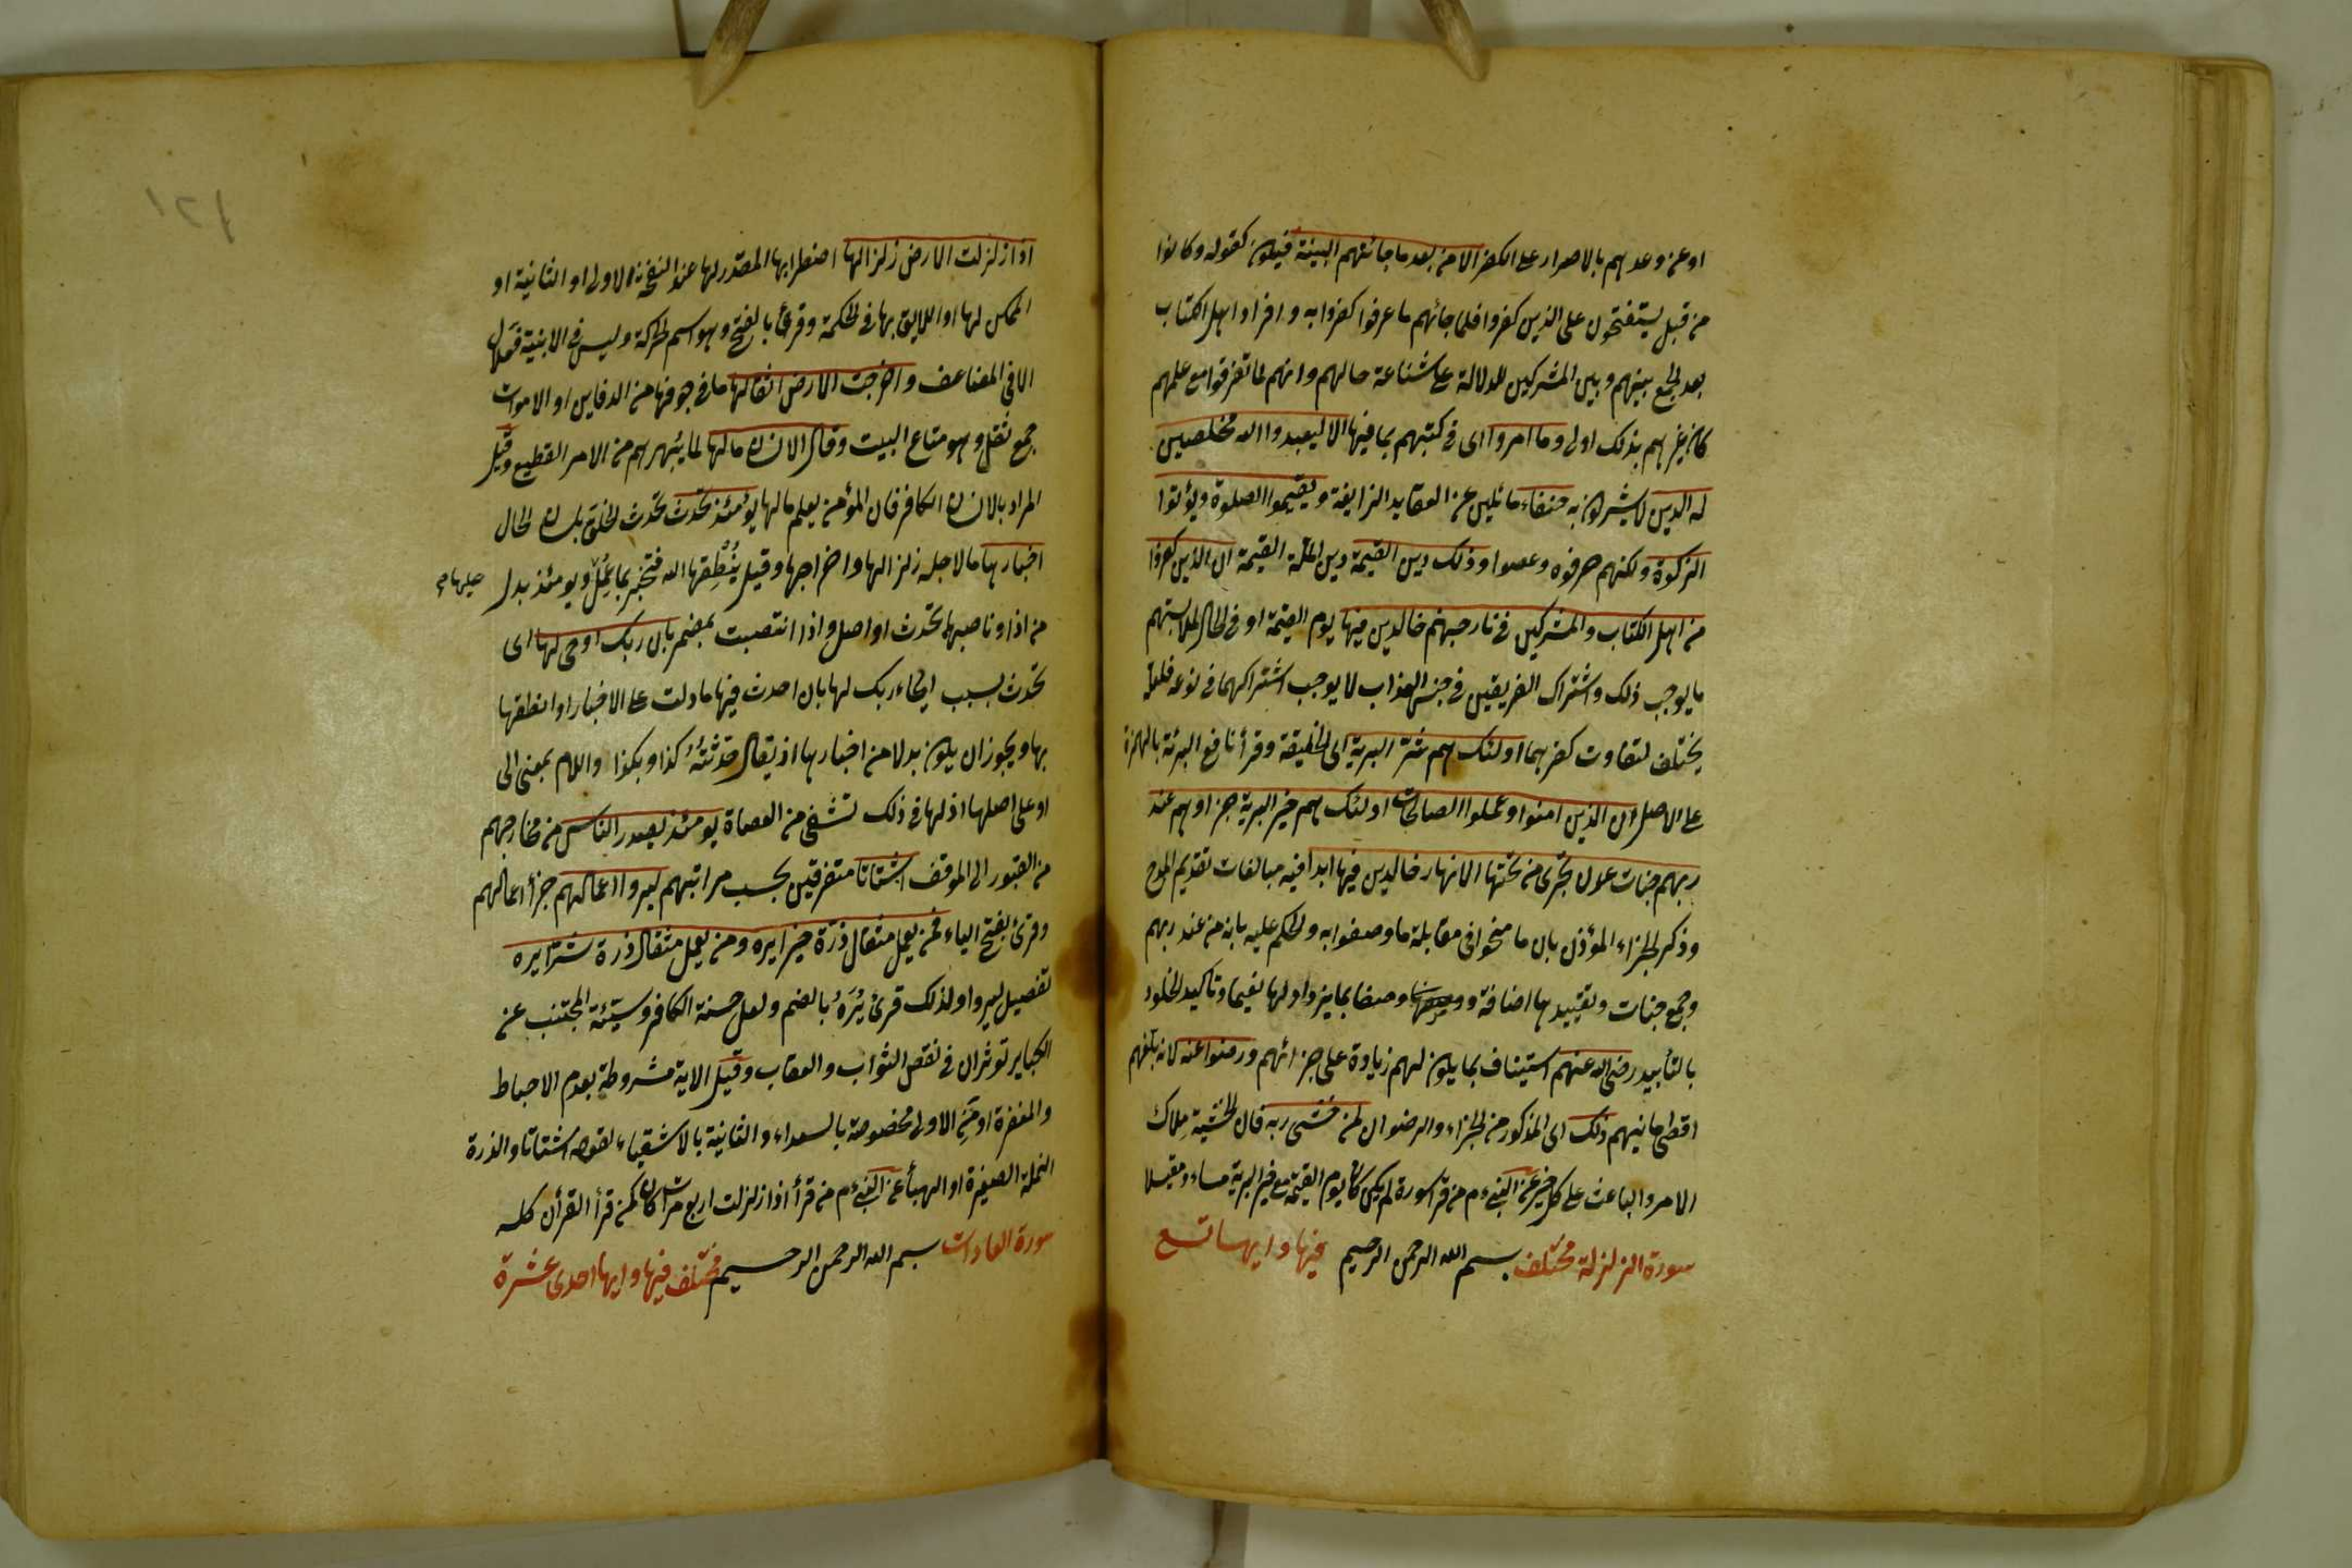 او عن وعدهم بالاصرار على الكفر الا من بعد ما جائتهم البينة فيكون كقوله وكانوا
من قبل يستفتحون على الذين كفروا فلما جائهم ما عرفوا كفروا به وافراد اهل الكتاب
بعد الجمع بينهم وبين المشركين للدلالة على شناعة حالهم وانهم لما تفرقوا مع علمهم
كان غيرهم بذلك اولى وما امروا اى فى كتبهم بما فيها الا ليعبدوا الله مخلصين
له الدين لا يشركون به حنفاء مائلين عن العقايد الزايغة ويقيموا الصلوة ويؤتوا
الزكوة ولكنهم حرفوه وعصوا وذلك دين القيمة دين الملة القيمة ان الذين كفروا
من اهل الكتاب والمشركين فى نار جهنم خالدين فيها يوم القيمة او فى الحال لملابستهم
ما يوجب ذلك واشتراك الفريقين فى جنس العذاب لا يوجب اشتراكهما فى نوعه فلعله
يختلف لتفاوت كفرهما اولئك هم شر البرية اى الخليقة وقرأ نافع البرئة بالهمزة
على الاصل ان الذين امنوا وعملوا الصالحات اولئك هم خير البرية جزاوهم عند
ربهم جنات عدن تجرى من تحتها الانهار خالدين فيها ابدا فيه مبالغات تقديم المدح
وذكر الجزاء المؤذن بان ما منحوا فى مقابلة ما وصفوا به والحكم عليه بانه من عند ربهم
وجمع جنات وتقييدها اضافة ووصفا بما يزداد لها نعيما وتاكيد الخلود
بالتأبيد رضى الله عنهم استيناف بما يكون لهم زيادة على جزائهم ورضوا عنه لانه بلغهم
اقصى امانيهم ذلك اى المذكور من الجزاء والرضوان لمن خشى ربه فان الخشية ملاك
الامر والباعث على كل خير عن النبى م من قرأ سورة لم يكن كان يوم القيمة مع خير البرية مساء ومقيلا
سورة الزلزلة مختلف بسم الله الرحمن الرحيم فيها وايها تسع
اذا زلزلت الارض زلزالها اضطرابها المقدر لها عند النفخة الاولى او الثانية او
الممكن لها او اللايق بها فى الحكمة وقرئ بالفتح وهو اسم الحركة وليس فى الابنية فعلال
الا فى المضاعف واخرجت الارض اثقالها ما فى جوفها من الدفاين او الاموات
جمع ثقل وهو متاع البيت وقال الانسان مالها لما يبهرهم من الامر الفظيع وقيل
المراد بالانسان الكافر فان المؤمن يعلم ما لها يومئذ تحدث تحدث الخلق بلسان الحال
اخبارها ما لاجله زلزالها واخراجها وقيل ينطقها الله فتخبر بما عمل ويومئذ بدل
عليها م
من اذا وناصبها تحدث او اصل واذا انتصبت بمضمر بان ربك اوحى لها اى
تحدث بسبب ايحاء ربك لها بان احدث فيها ما دلت على الاخبار او انطقها
بها ويجوز ان يكون بدلا من اخبارها اذ يقال حدثته كذا وبكذا واللام بمعنى الى
او على اصلها اذ لها فى ذلك تشفى من العصاة يومئذ يصدر الناس من مخارجهم
من القبور الى الموقف اشتاتا متفرقين بحسب مراتبهم ليروا اعمالهم جزأ اعمالهم
وقرئ بفتح الياء فمن يعمل مثقال ذرة خيرا يره ومن يعمل مثقال ذرة شرا يره
تفصيل ليروا ولذلك قرئ يُرَهُ بالضم ولعل حسنة الكافر وسيئة المجتنب عن
الكباير توثران فى نقص الثواب والعقاب وقيل الاية مشروطة بعدم الاحباط
والمغفرة او من الاولى مخصوصة بالسعداء والثانية بالاشقياء لقوله اشتاتا والذرة
النملة الصغيرة او الهبأ عن النبى م من قرأ اذا زلزلت اربع مرات كان كمن قرأ القرأن كله
سورة العاديات بسم الله الرحمن الرحيم مختلف فيها وايها احدى عشرة
١٢١